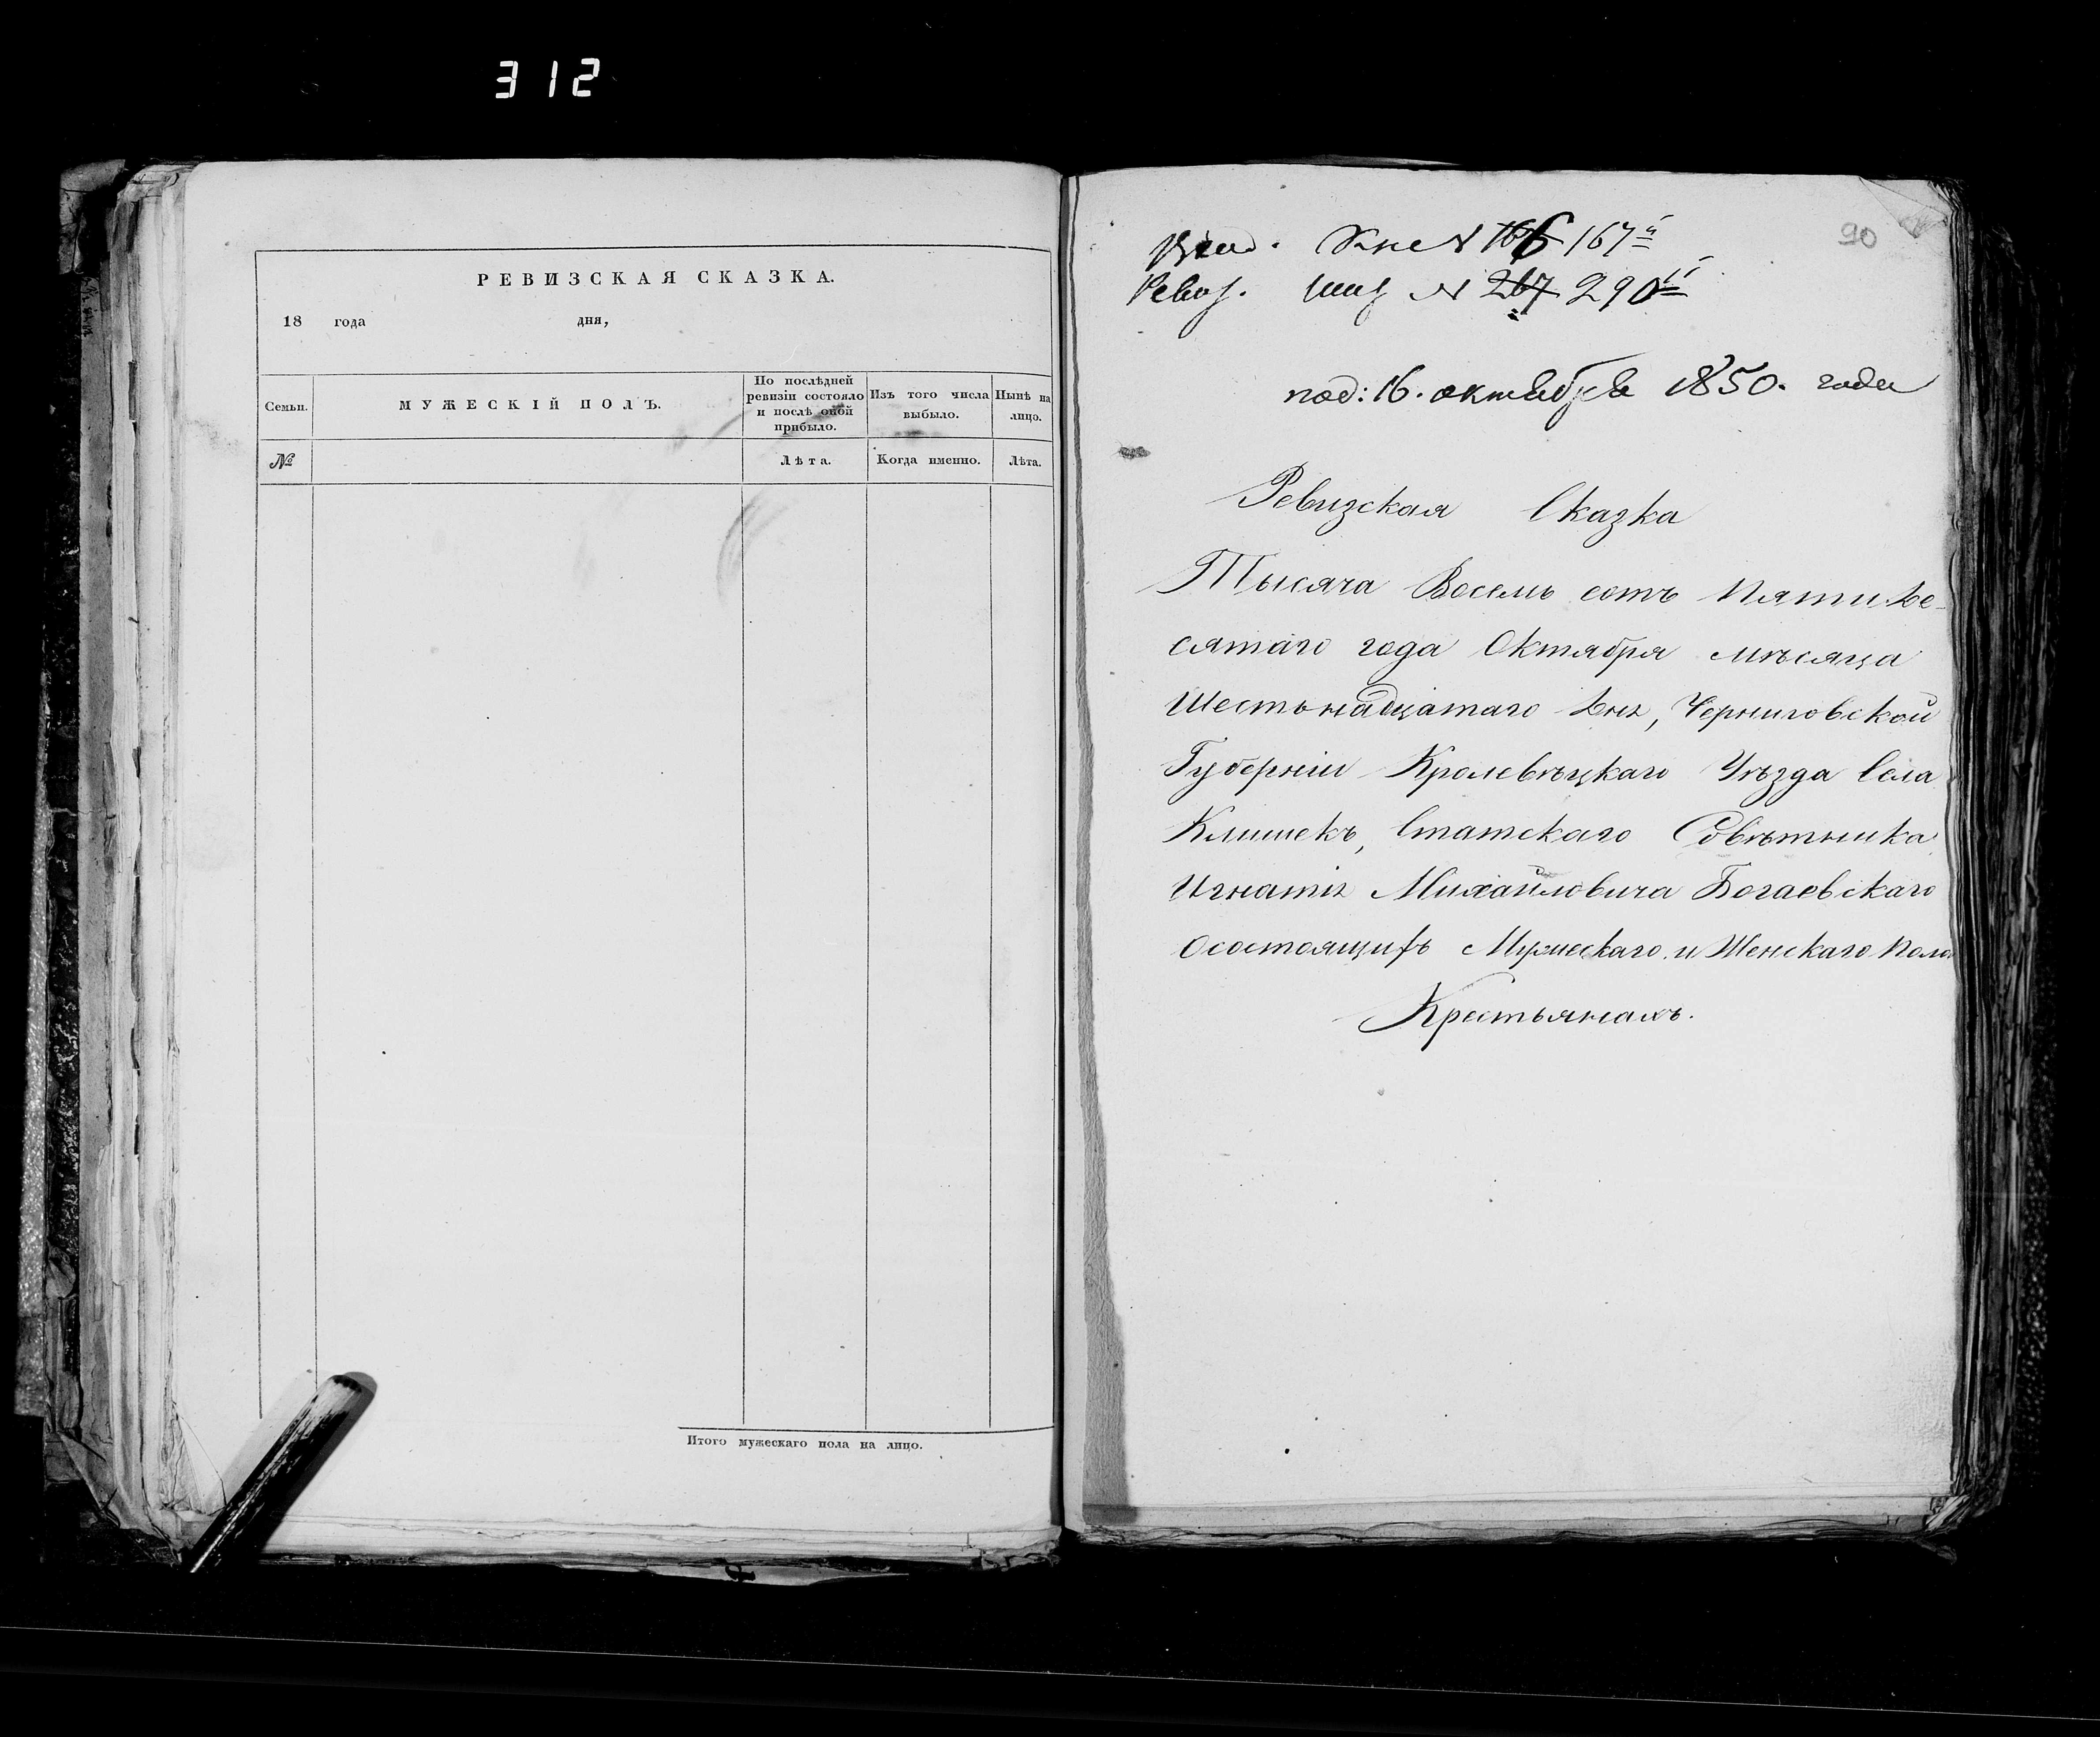 312
РЕВИЗСКАЯ СКАЗКА.
18 года дня,
Семьи.
МУЖЕСКІЙ ПОЛЪ.
По послѣдней
ревизіи состояло
и послѣ оной
прибыло.
Изъ того числа
выбыло.
Нынѣ на
лицо.
№
Лѣта.
Когда именно.
Лѣта.
Итого мужескаго пола на лицо.
90
№ 166 167й
№ 267 290й
под: 16. октября 1850. года
Ревизская Сказка
Тысяча Восемь сотъ Пятиде-
сятаго года Октября мѣсяца
Шестьнадцатаго дня, Черниговской
Губерніи Кролевѣцкаго Уѣзда Села
Клишекъ, Статскаго Совѣтника
Игнатія Михайловича Богаевскаго
Осостоящихъ Мужескаго и Женскаго пола
Крестьянахъ.